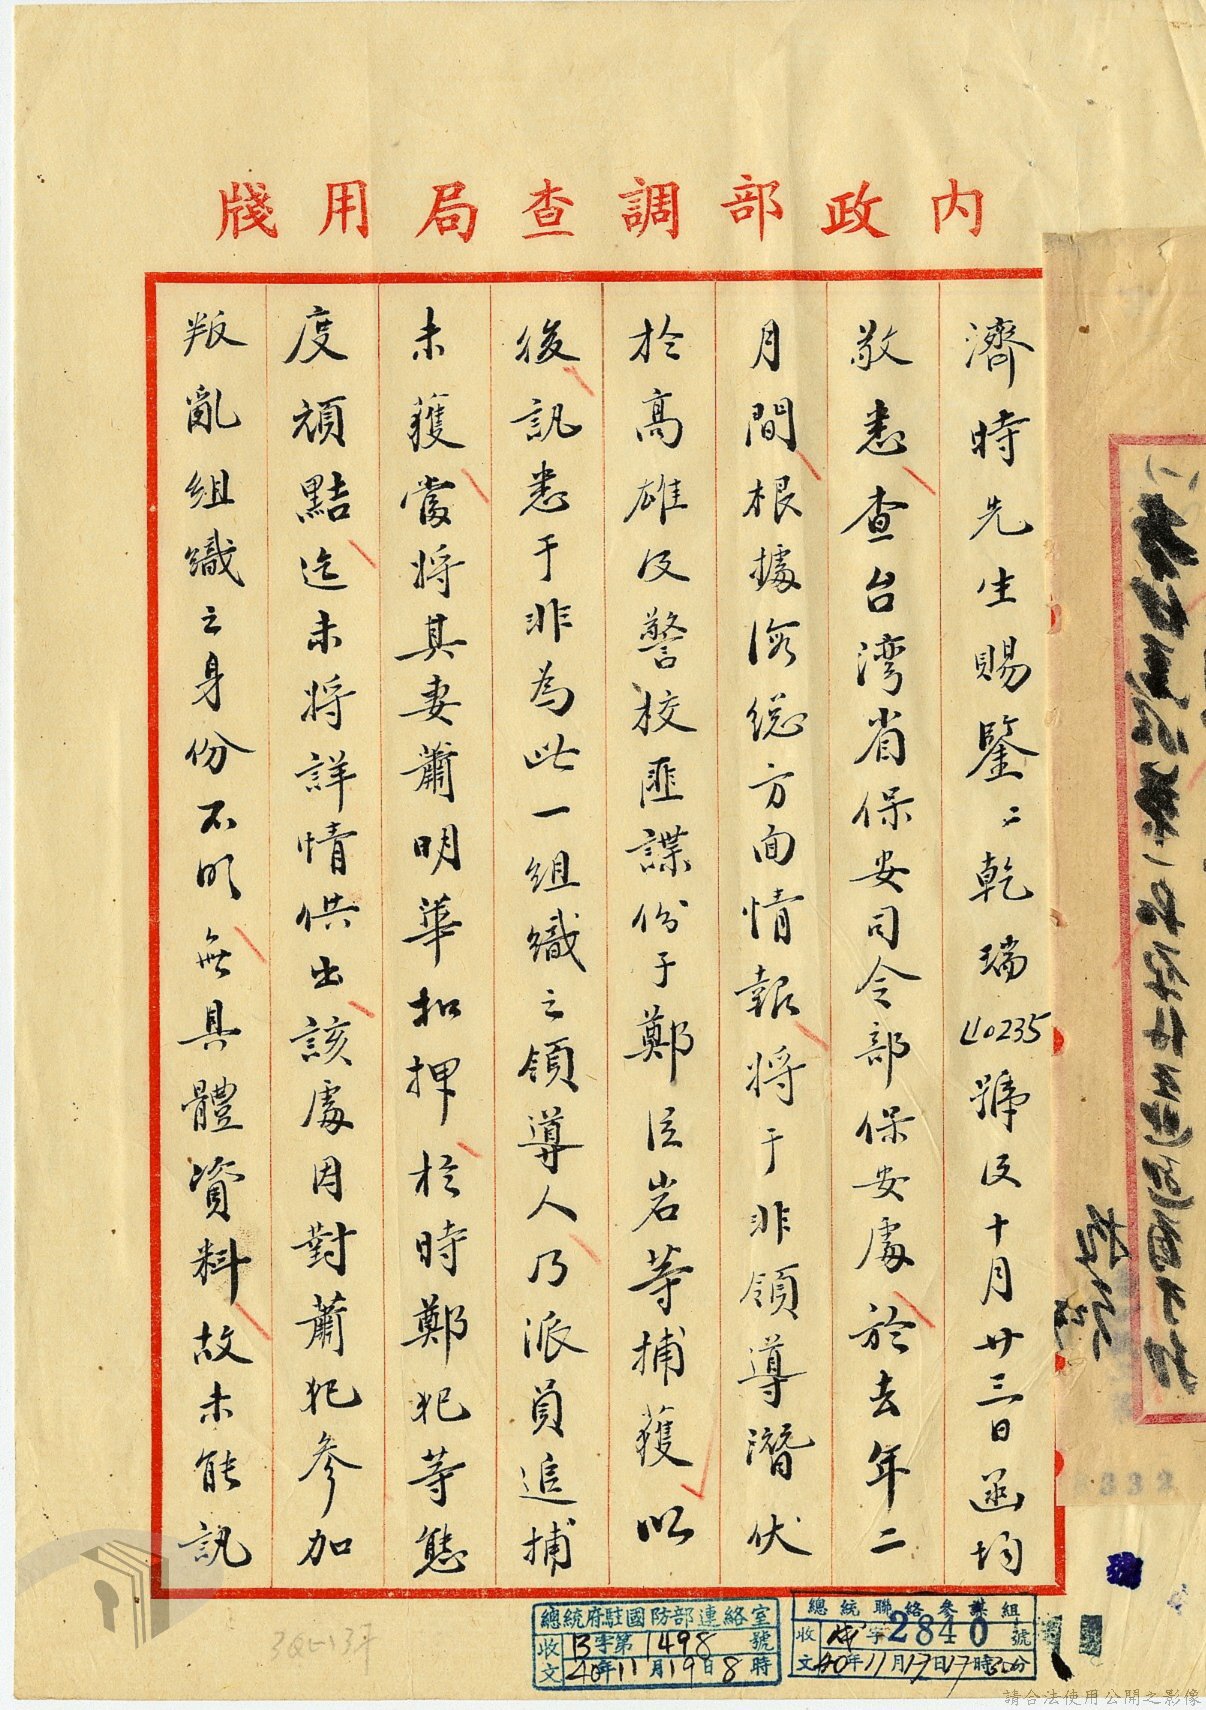 內政部調查局用牋
濟時先生賜鑒：乾瑞40235號及十月廿三日函均
敬悉查台灣省保安司令部保安處於去年二
月間根據游總方面情報將于非領導潛伏
於高雄及警校匪諜份子鄭臣岩等捕獲以
後訊悉于非為此一組織之領導人乃派員追捕
未獲當將其妻蕭明華扣押於時鄭犯等態
度頑黠迄未將詳情供出該處因對蕭犯參加
叛亂組織之身份不明無具體資料故未能訊
總統府駐國防部連絡室
收文 字第1498號
40年11月19日8時
總統聯絡參謀組
收文 字2840號
40年11月17日17時30分
請合法使用公開之影像